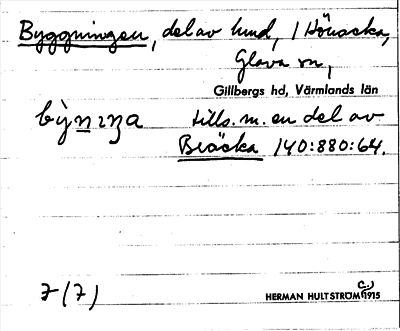 Byggningen, del av hmd, i Hönacka,
Glava sn,
Gillbergs hd, Värmlands län
bỳnıŋa tills. m. en del av
Bräcka 140:880:64.
7 (7)
HERMAN HULTSTRÖM (C.) 1915